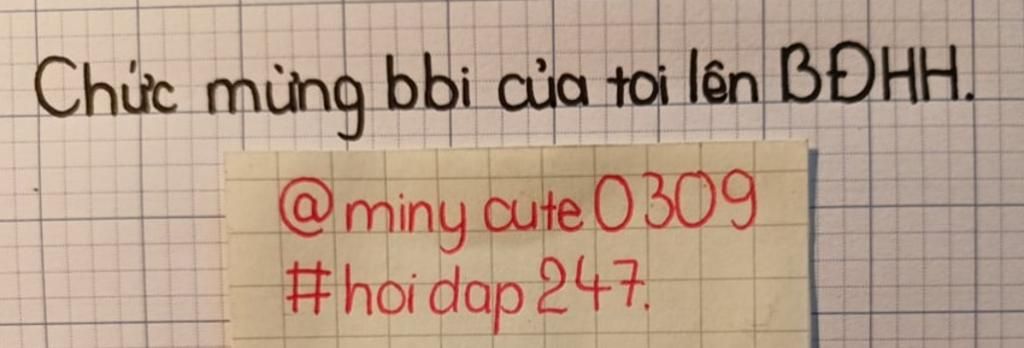 Chức mừng bbi của toi lên BĐHH.
@miny cute 0309
#hoi dap 247.